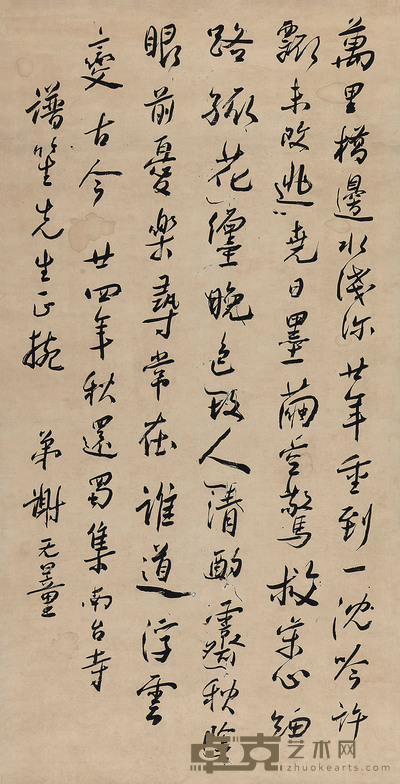 萬里橋邊水淺深廿年重到一沈吟許
瓢未改逃堯日墨繭空驚救宋心
路花晚色故人清酌秋陰
眼前憂樂尋常在誰道浮雲
變古今 廿四年秋還蜀集南台寺
譜笙先生正捥 弟謝无量
卓克艺术网
zhuokearts.com